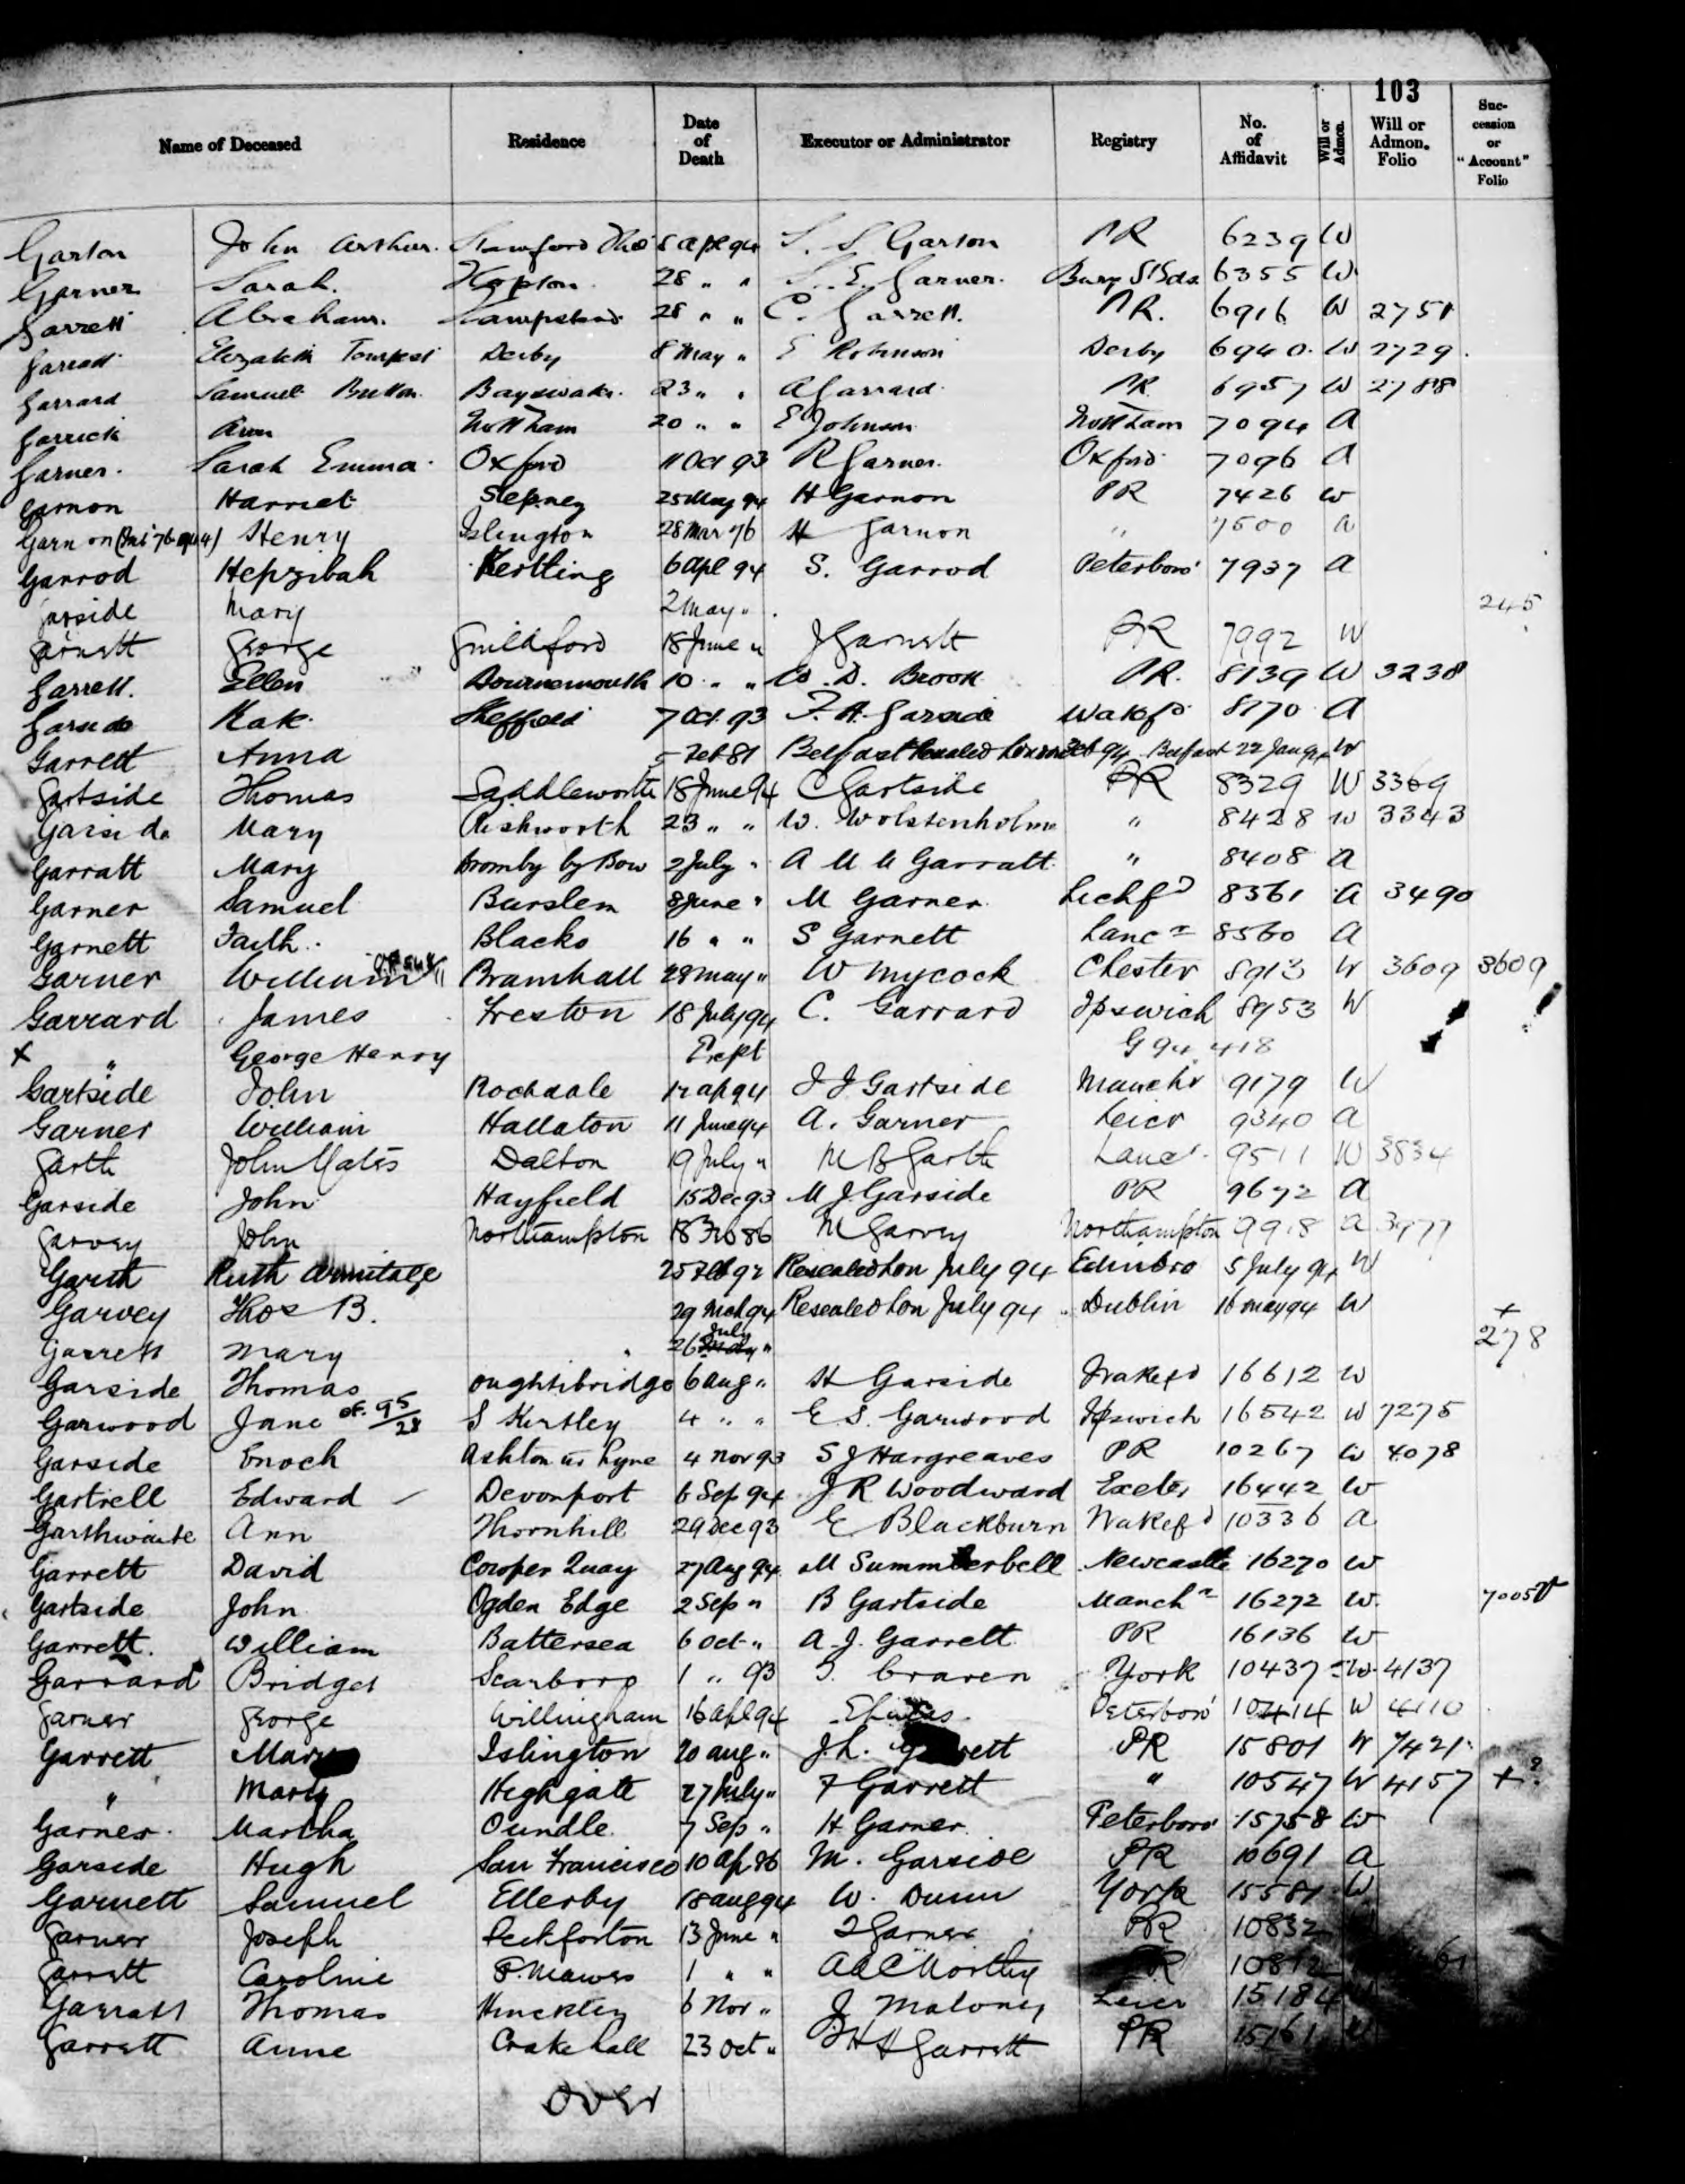 103
Name of Deceased Residence Date of Death Executor or Administrator Registry No. of Affidavit Will or Admon. Will or Admon. Folio Suc-cession or "Account" Folio
Garton John Arthur. 5 Apl 94 S. S Garton PR 6239 W
Garner Sarah. Hopton 28 " " S. E. Garner. Bury St Eds. 6355 W
Garrett Abraham. Hampstead 28 " " C. Garrett. PR. 6916 W 2751
Garratt Elizabeth Tempest Derby 8 May " E Robinson Derby 6940 W 2729
Garrard Samuel Button Bayswater. 23 " " A Garrard PR 6957 W 2788
Garrick Ann Nottham 20 " " E Johnson Nottham 7094 A
Garner. Sarah Emma Oxford 11 Oct 93 R Garner. Oxford 7096 A
Garnon Harriet Stepney 25 May 94 H Garnon PR 7426 W
Garnon Henry Islington 28 Mar 76 H Garnon " 7500 A
Garrod Hepzibah Kertling 6 Apl 94 S. Garrod Peterboro' 7937 A
Garside Mary 2 May " 245
Garnett George Guildford 18 June " J Garnett PR 7992 W
Garrett. Ellen Bournemouth 10 " " D. Brook PR. 8139 W 3238
Garside Kate Sheffield 7 Oct 93 F. H. Garside Wakefd 8170 A
Garrett Anna 5 Feb 81 Belfast Resealed London Feb 94 Belfast 22 Jan 94 W
Gartside Thomas Saddleworth 18 June 94 C Gartside PR 8329 W 3369
Garside Mary Rishworth 23 " " W. Wolstenholme " 8428 W 3343
Garratt Mary Bromby by Bow 2 July " A M M Garratt " 8408 A
Garner Samuel Burslem 8 June " M Garner Lichfd 8361 A 3490
Garnett Faith Blacko 16 " " S Garnett Lancr 8560 A
Garner William Bramhall 28 May " W Mycock Chester 8913 W 3609 3609
Garrard James Freston 18 July 94 C. Garrard Ipswich 8953 W
x " George Henry Exept G 94 418
Gartside John Rochdale 12 Ap 94 J J Gartside Manchr 9179 W
Garner William Hallaton 11 June 94 A. Garner Leicr 9340 A
Garth John Yates Dalton 19 July " M B Garth Lancr 9511 W 3834
Garside John Hayfield 15 Dec 93 M J. Garside PR 9672 A
Garvey John Northampton 18 Feb 86 M Garvey Northampton 9918 A 3977
Garth Ruth Armitage 25 Feb 92 Resealed Lon July 94 Edinbro 5 July 94 W
Garvey Thos B. 29 Mch 94 Resealed Lon July 94 Dublin 16 May 94 W
Garrett Mary 26 July " + 278
Garside Thomas Oughtibridge 6 Aug " H Garside Wakefd 16612 W
Garwood Jane cf. 95/28 S Kirtley 4 " " E S. Garwood Ipswich 16542 W 7275
Garside Enoch Ashton ur Lyne 4 Nov 93 S J Hargreaves PR 10267 W 4078
Gartrell Edward Devonport 6 Sep 94 J R Woodward Exeter 16442 W
Garthwaite Ann Thornhill 29 Dec 93 E Blackburn Wakefd 10336 A
Garrett David Cowper Quay 27 Aug 94 M Summerbell Newcastle 16270 W
Gartside John Ogden Edge 2 Sep " B Gartside Manchr 16272 W 7005
Garrett. William Battersea 6 Oct " A. J. Garrett PR 16136 W
Garrard Bridget Scarboro 1 " 93 Craven York 10437 W 4137
Garner George Willingham 16 Apl 94 Peterboro' 10414 W 4110
Garrett Mary Islington 20 Aug " J. L. Garrett PR 15801 W 7421
" Mary Highgate 27 July " F Garrett " 10547 W 4157 + ?
Garner Martha Oundle 7 Sep " H Garner Peterboro' 15758 W
Garside Hugh San Francisco 10 Ap 86 M. Garside PR 10691 A
Garnett Samuel Ellerby 18 Aug 94 W. Dunn York 15581 W
Garner Joseph Peckforton 13 June " Garner PR 10832
Garrett Caroline P. Mawes 1 " " PR 10812
Garratt Thomas Hinckley 6 Nov " J Maloney Leicr 15184
Garrett Anne Crakehall 23 Oct " Garrett PR 15161
over